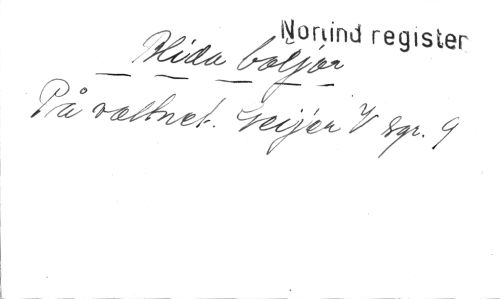 Norlind register
Blida böljor
På vattnet. Geijer V sgr. 9